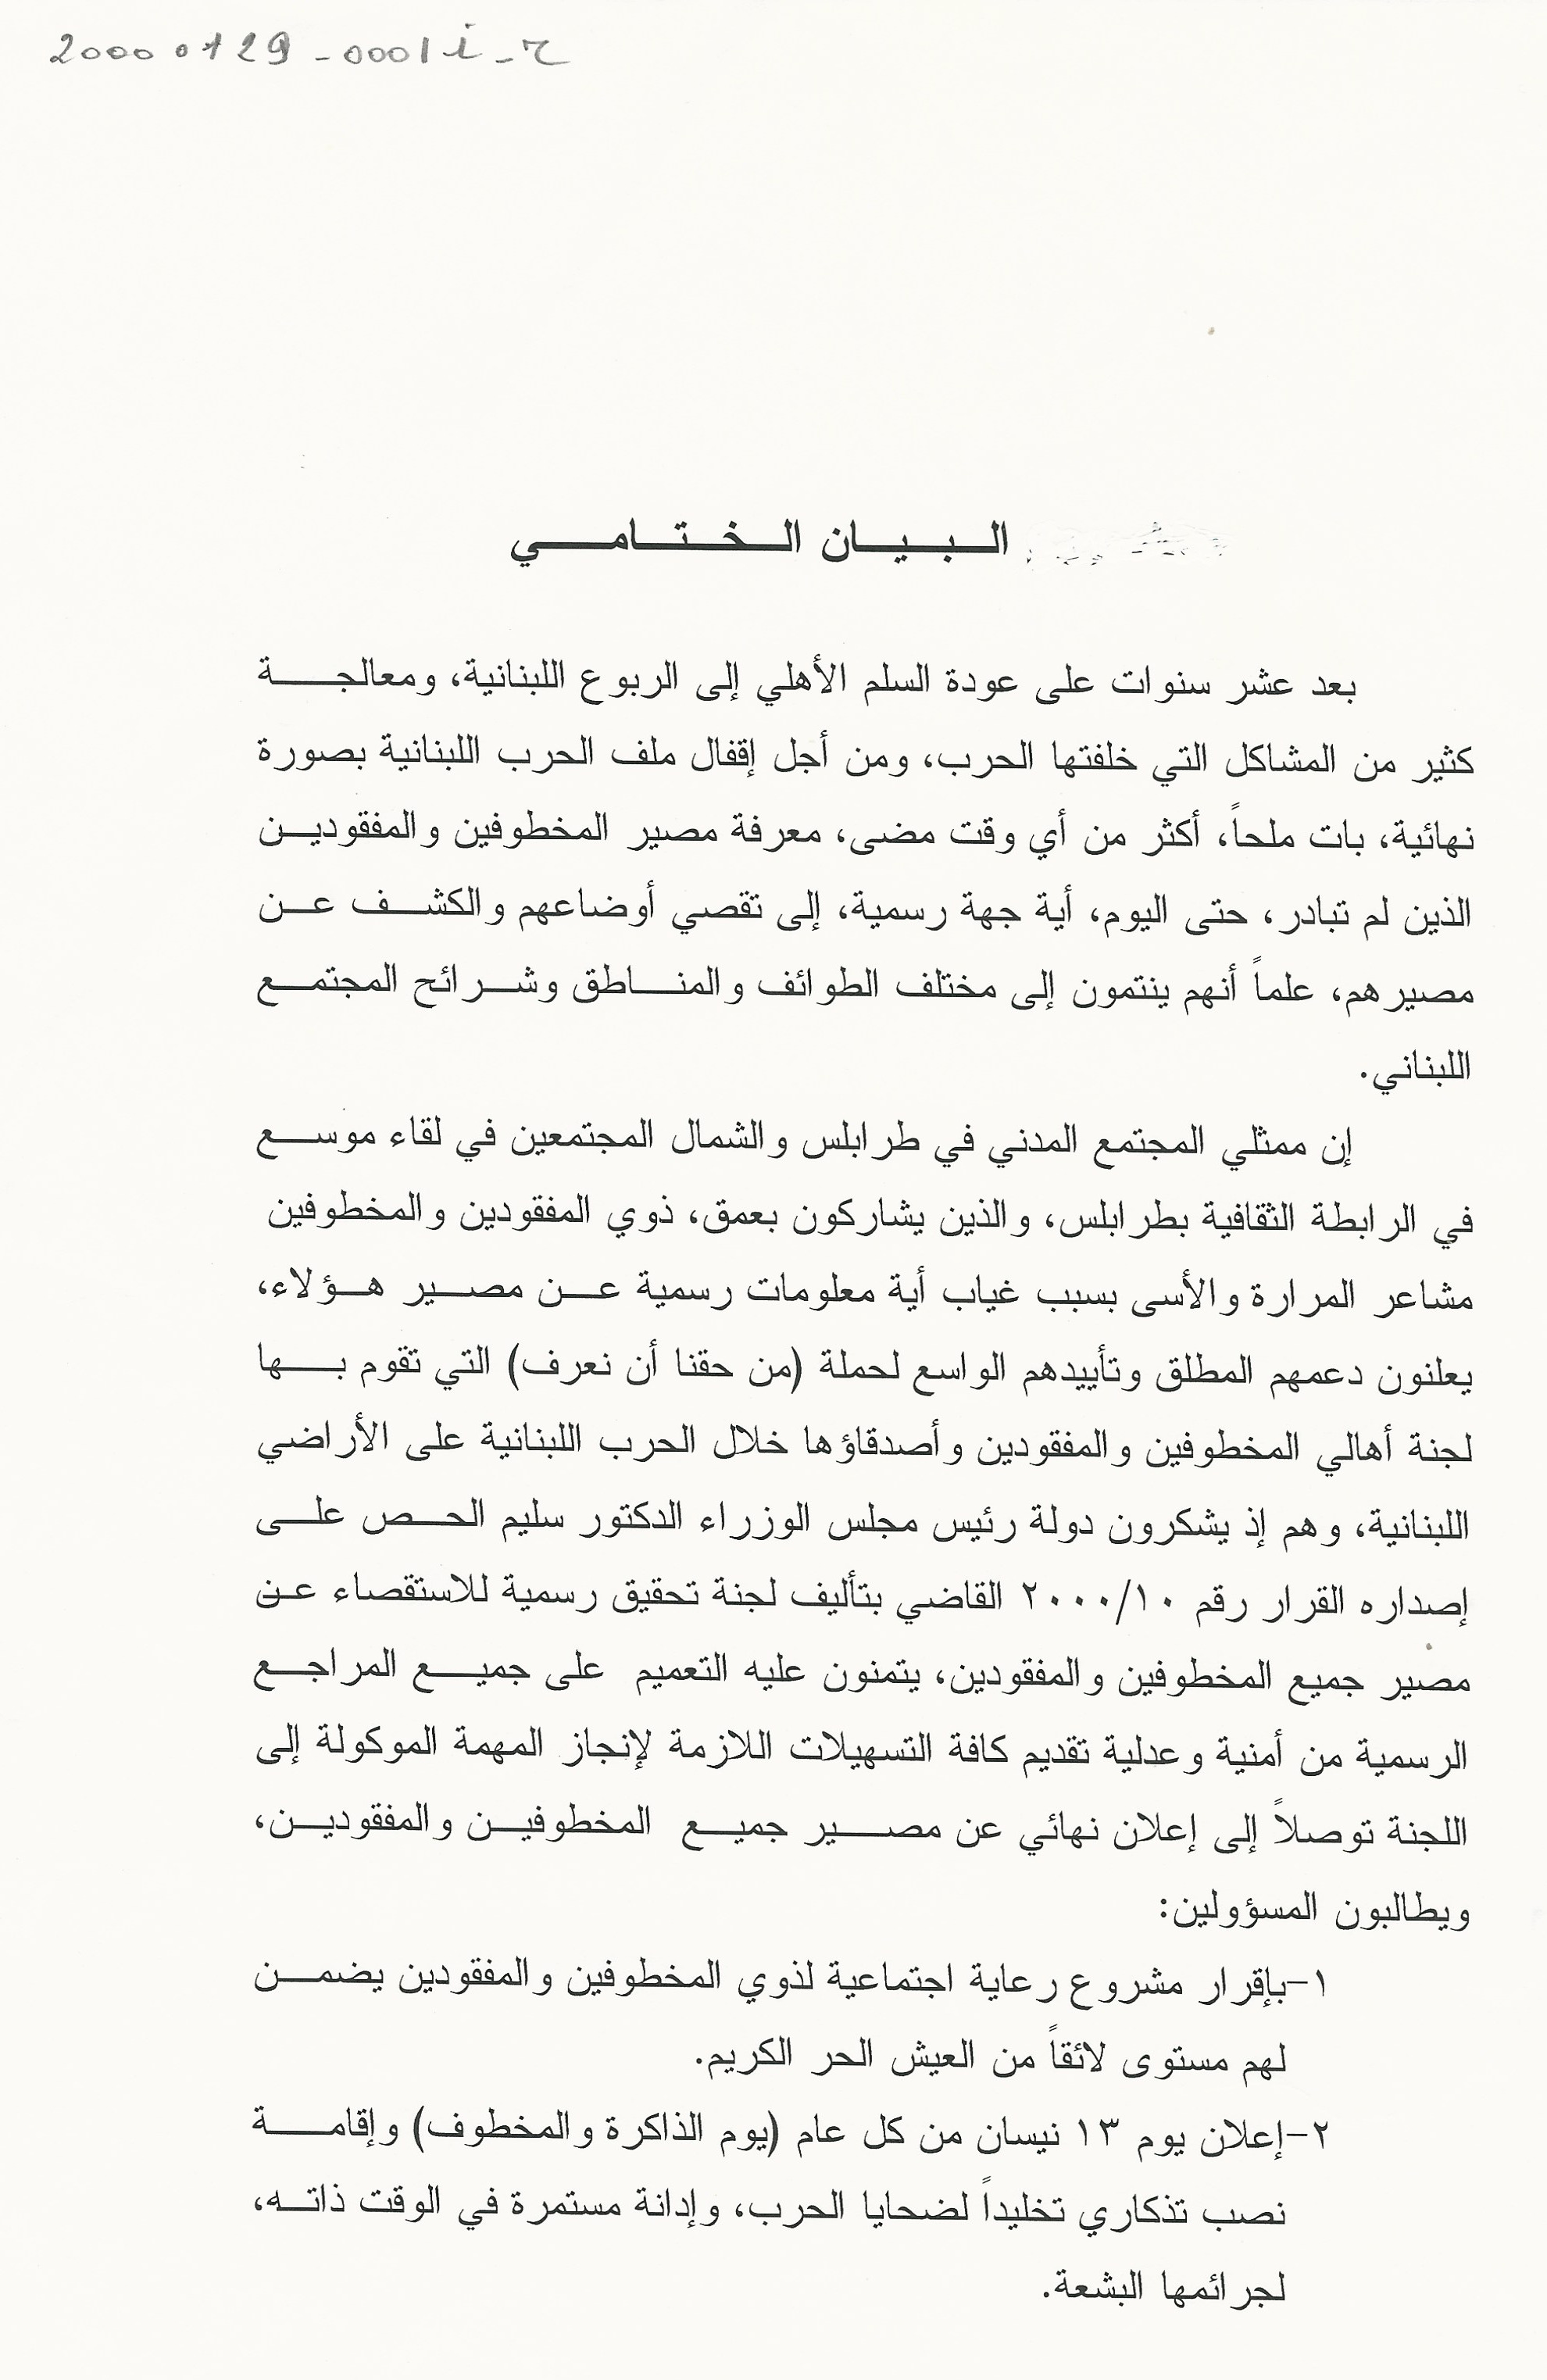 20000129-0001i-r
البيان الختامي
بعد عشر سنوات على عودة السلم الأهلي إلى الربوع اللبنانية، ومعالجة
كثير من المشاكل التي خلفتها الحرب، ومن أجل إقفال ملف الحرب اللبنانية بصورة
نهائية، بات ملحاً، أكثر من أي وقت مضى، معرفة مصير المخطوفين والمفقودين
الذين لم تبادر، حتى اليوم، أية جهة رسمية، إلى تقصي أوضاعهم والكشف عن
مصيرهم، علماً أنهم ينتمون إلى مختلف الطوائف والمناطق وشرائح المجتمع
اللبناني.
إن ممثلي المجتمع المدني في طرابلس والشمال المجتمعين في لقاء موسع
في الرابطة الثقافية بطرابلس، والذين يشاركون بعمق، ذوي المفقودين والمخطوفين
مشاعر المرارة والأسى بسبب غياب أية معلومات رسمية عن مصير هؤلاء،
يعلنون دعمهم المطلق وتأييدهم الواسع لحملة (من حقنا أن نعرف) التي تقوم بها
لجنة أهالي المخطوفين والمفقودين وأصدقاؤها خلال الحرب اللبنانية على الأراضي
اللبنانية، وهم إذ يشكرون دولة رئيس مجلس الوزراء الدكتور سليم الحص على
إصداره القرار رقم ٢٠٠٠/١٠ القاضي بتأليف لجنة تحقيق رسمية للاستقصاء عن
مصير جميع المخطوفين والمفقودين، يتمنون عليه التعميم على جميع المراجع
الرسمية من أمنية وعدلية تقديم كافة التسهيلات اللازمة لإنجاز المهمة الموكولة إلى
اللجنة توصلاً إلى إعلان نهائي عن مصير جميع المخطوفين والمفقودين،
ويطالبون المسؤولين:
١-بإقرار مشروع رعاية اجتماعية لذوي المخطوفين والمفقودين يضمن
لهم مستوى لائقاً من العيش الحر الكريم.
٢-إعلان يوم ١٣ نيسان من كل عام (يوم الذاكرة والمخطوف) وإقامة
نصب تذكاري تخليداً لضحايا الحرب، وإدانة مستمرة في الوقت ذاته،
لجرائمها البشعة.